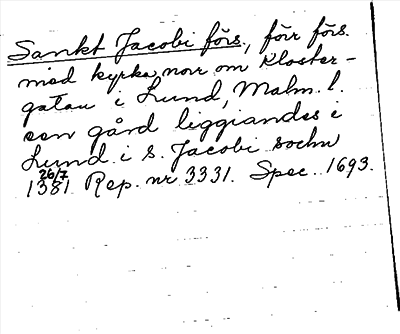 Sankt Jacobi förs, förr förs.
med kyrka norr om Kloster-
gatan i Lund, Malm. l.
een gård liggiandes i
Lund i S. Jacobi sochn
26/7
1381 Rep. nr 3331. Spec. 1693.